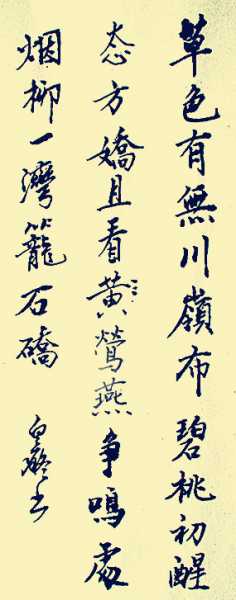 草色有無川嶺布碧桃初醒
态方嬌且看黄鶯燕争鳴處
烟柳一灣籠石礄